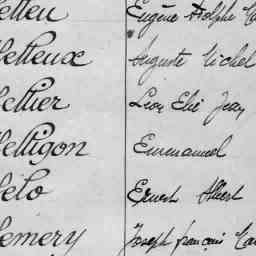 elleu Eugène Adolphe Ca
elleux Auguste Michel
ellier Léon Elie Jean
elligon Emmanuel
elo Ernest Albert
emery Joseph françois Ca